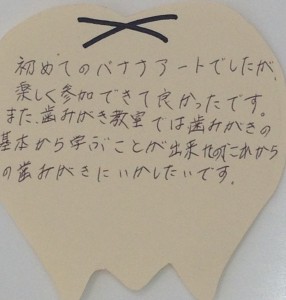 初めてのバナナアートでしたが、
楽しく参加できて良かったです。
また、歯みがき教室では歯みがきの
基本から学ぶことが出来たのでこれから
の歯みがきにいかしたいです。